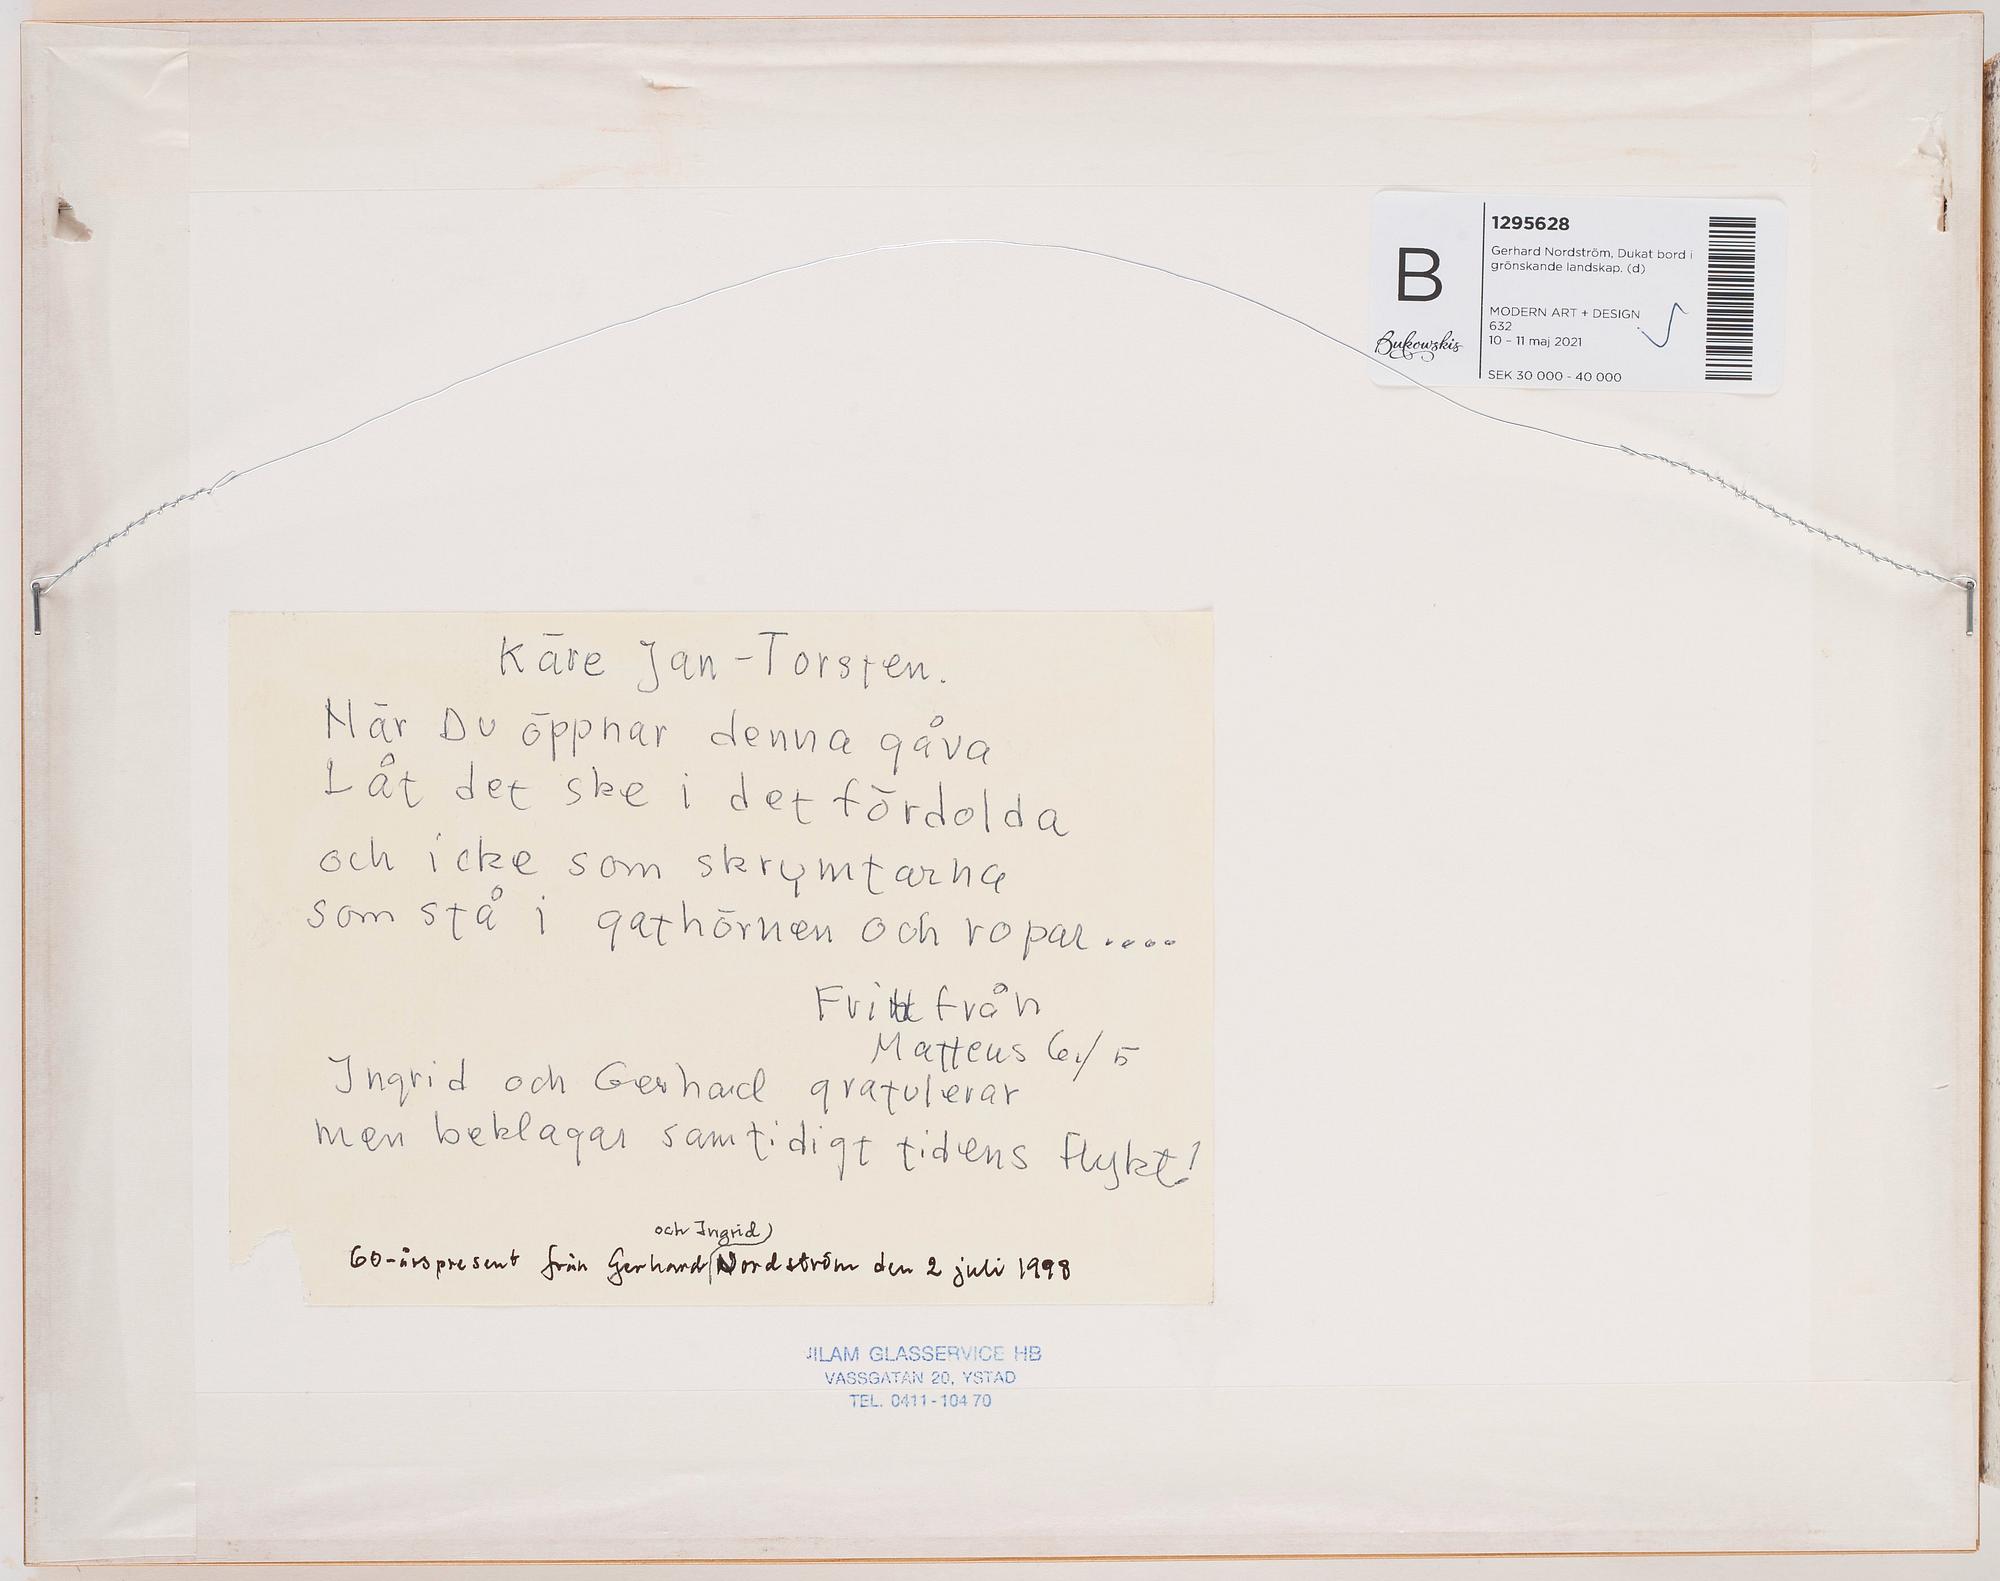 B
Bukowskis
1295628
Gerhard Nordström, Dukat bord i
grönskande landskap. (d)
MODERN ART + DESIGN
632
10 – 11 maj 2021
SEK 30 000 - 40 000
Käre Jan-Torsten.
När Du öppnar denna gåva
Låt det ske i det fördolda
och icke som skrymtarna
som stå i gathörnen och ropar....
Fritt från
Matteus 6/5
Ingrid och Gerhard gratulerar
men beklagar samtidigt tidens flykt!
och Ingrid)
60-årspresent från Gerhard Nordström den 2 juli 1998
JILAM GLASSERVICE HB
VASSGATAN 20, YSTAD
TEL. 0411-104 70